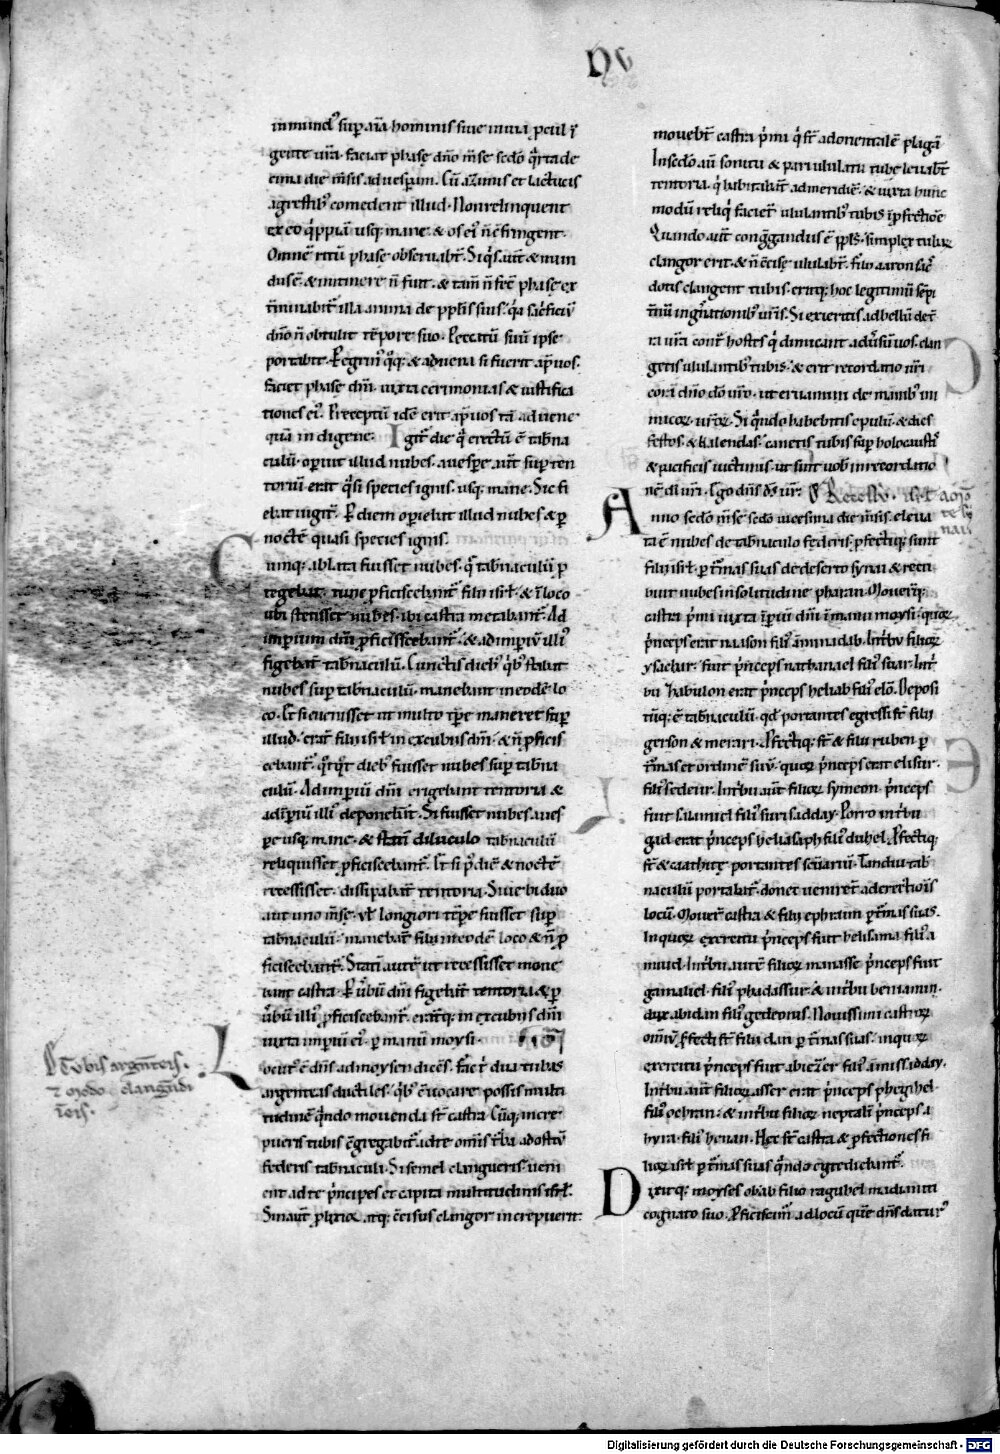 NV
inmund' sup aīa hominis siue in uia pcul ī
gente ur̄a. faciat phase dn̄o mēse scdo q̄rta de
cima die mēsis ad uesperum. Cū azimis et lactucis
agrestib; comedent illud. Non relinquent
ex eo q̇ppiā usq; mane. & os ei' n̄ cōfringent.
Omnē ritū phase obseruabt̄. Si q̇s aut̄ & mun
dus ē. & in itinere n̄ fuit. & tam̄ n̄ fec̄ phase. ex
t̄minabit̄ illa anima de pp̄lis suis. q̇a sac̄ficiū
dn̄o n̄ obtulit tēpore suo. Peccatū suū ipse
portabit. Pegrin' q̇q; & aduena si fuerit ap̄ uos.
faciet phase dn̄i. iuxta cerimonias & iustifica
tiones ei'. Preceptū idē erit ap̄ uos tā aduene
quā indigene. Igit̄ die q̄ erectū ē tab̄na
culū. operuit illud nubes. a uespe aut̄ sup ten
toriū erat q̄si species ignis. usq; mane. Sic fi
ebat iugit̄. P diem operiebat illud nubes & p
noctē quasi species ignis.
Cumq; ablata fuisset nubes. q̄ tab̄naculū p
tegebat. tunc pficiscebant̄ filii isrl̄. & ī loco
ubi stetisset nubes. ibi castra metabant̄. Ad
imperium dn̄i pficisscebant̄. & ad imperiū illi'
figebant̄ tab̄naculū. Cunctis dieb; q̇b; stabat
nubes sup tab̄naculū. manebant in eodē lo
co. Et si euenisset ut multo tp̄e maneret sup
illud. erant̄ filii isrl̄ in excubiis dn̄i. & n̄ pficis
cebant̄. q̄tq̄t dieb; fuisset nubes sup tab̄na
culū. Ad imperiū dn̄i erigebant tentoria &
ad īperiū illi' deponebant̄. Si fuisset nubes. a ues
pe usq; mane. & statī diluculo tab̄naculū
reliquisset pficiscebant̄. Et si p diē & noctē
recessisset. dissipabant̄ tentoria. Siue biduo
aut uno mēse. ut̄ longiori tēpe fuisset sup
tab̄naculū. manebant̄ filii in eodē loco & n̄ p
ficiscebant̄. Statī autē ut recessisset moue
bant castra. P ūbū dn̄i figebant̄ tentoria. & p
ūbū illi' pficiscebant̄. erantq; in excubiis dn̄i
iuxta imperiū ei'. p manū moysi.
Locut' ē dn̄s ad moysen dicēs. Fac t̄ duas tubas
argenteas ductiles. q̇b; cōuocare possis multi
tudinē q̄ndo mouenda st̄ castra. Cūq; incre
pueris tubis cōgregabit̄ ad te omīs t̄ba ad ostiū
federis tab̄naculi. Si semel clangueris. ueni
ent ad te p̄ncipes et capita multitudinis isrl̄.
Sin aut̄ plixior. atq; cōcisus clangor increpuerit:
De Tubis argēnteis.
et modo clangēndi
in eis.
mouebt̄ castra p̄mi q̇ st̄ ad orientalē plagā
In scdo aū sonitu & pari ululatu tube leuabt̄
tentoria. q̇ habitabant̄ ad meridiē. & iuxta hunc
modū reliq̇ facient̄ ululantib; tubis ī pfectiōe
Quando aut̄ congregandus ē ppl̄s. simplex tubarꝝ
clangor erit. & n̄ cōcise ululabt̄. filii aaron sac̄
dotis clangent tubis. eritq; hoc legitimū sepi
t̄nū in gn̄ationib; ur̄is. Si exieritis ad bellū de t̄
ra ur̄a cont̄ hostes q̇ dimicant aduersū uos. clan
getis ululantib; tubis. & erit recordatio ur̄i
corā dn̄o do ur̄o. ut eruamini de manib; ini
micorꝝ ur̄orꝝ. Si q̄ndo habebitis epulū. & dies
festos. & kalendas. canetis tubis sup holocaustis
& pacificis uictimis. ut sint uob in recordatio
nē di ur̄i. Ego dn̄s ds̄ ur̄.
Anno scdo mēse scdo uicesima die mēsis. eleua
ta ē nubes de tab̄naculo federis. pfectiq; sunt
filii isrl̄. p t̄mas suas de deserto synai. & recu
buit nubes in solitudine pharan. Mouerūtq;
castra p̄mi iuxta īperiū dn̄i ī manu moysi. quorꝝ
p̄nceps erat naason fili' aminadab. In t̄bu filiorꝝ
ysachar. fuit p̄nceps nathanael fili' suar. In t̄
bu zabulon erat p̄nceps heliab fili' elō. Deposi
tūq; ē tab̄naculū. qd̄ portantes egressi st̄ filii
gerson & merari. Pfectiq; st̄ & filii ruben p
t̄mas et ordinē suū. quorꝝ p̄nceps erat elisur.
fili' sedeur. In t̄bu aut̄ filiorꝝ symeon p̄nceps
fuit salamiel fili' surisadday. Porro in t̄bu
gad. erat p̄nceps heliasaph fili' duhel. Pfectiq;
st̄ & caathite portantes sc̄uariū. Tandiu tab
naculū portabat̄. donec uenirent̄ ad erectiōis
locū. Mouerunt̄ castra & filii ephraim p t̄mas suas.
In quorꝝ exercitu p̄nceps fuit helisama fili' a
miud. In t̄bu autē filiorꝝ manasse p̄nceps fuit
gamaliel. fili' phadassur. & in t̄bu beniamin.
dux abidan fili' gedeonis. Nouissimi castrorꝝ
omiū. pfecti st̄ filii dan p t̄mas suas. in quorꝝ
exercitu p̄nceps fuit abiezer fili' amissadday.
In t̄bu aut̄ filiorꝝ asser erat p̄nceps phegihel.
fili' ochran. & in t̄bu filiorꝝ neptali p̄nceps. a
hyra. fili' henan. Hec st̄ castra & pfectiones fi
liorꝝ isrl̄ p t̄mas suas q̄ndo egrediebant̄.
Dixitq; moyses obab filio raguhel madianiti
cognato suo. Pficiscimur̄ ad locū quē dn̄s datur'
Digitalisierung gefördert durch die Deutsche Forschungsgemeinschaft - DFG